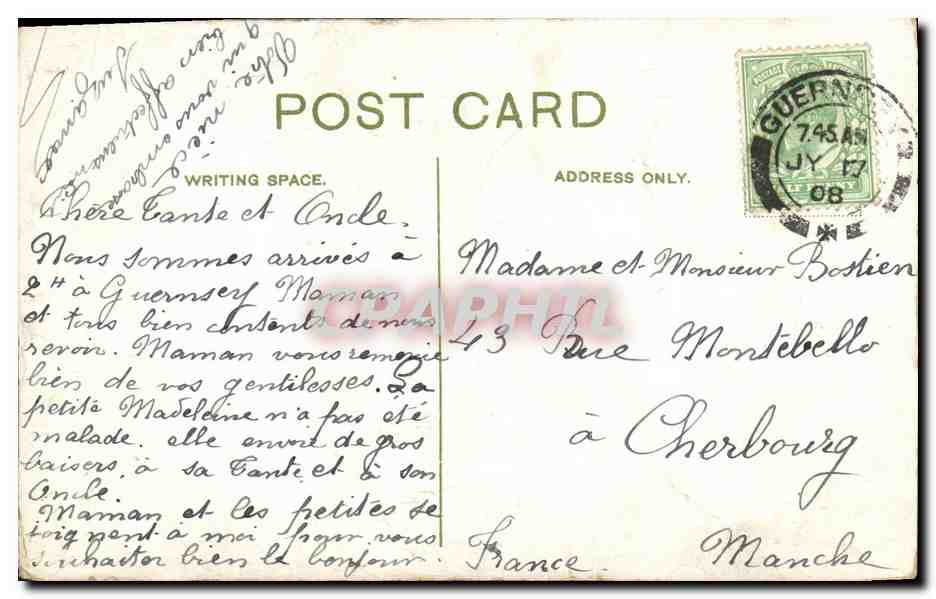 POST CARD
WRITING SPACE.
ADDRESS ONLY.
GUERNSEY
7.45 AM
JY 17
08
Chère Tante et Oncle.
Nous sommes arrivés à
2H à Guernsey Maman
et tous bien contents de nous
revoir. Maman vous remercie
bien de vos gentilesses. La
petite Madeleine n'a pas été
malade. elle envoie de gros
baisers à sa Tante et à son
Oncle.
Maman et les petites se
joignent à moi pour vous
souhaiter bien le bonjour.
Votre nièce
qui vous embrasse
bien affectueusement
Madame et Monsieur Bastien
43 Rue Montebello
à Cherbourg
France. Manche
CPAPHIL